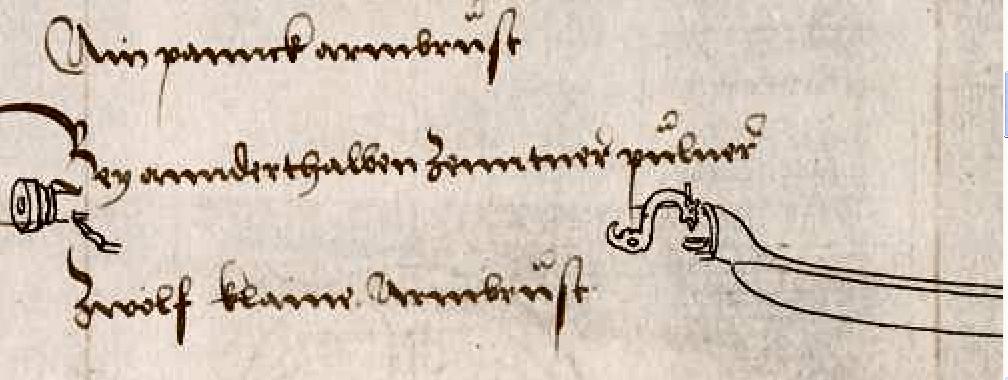 Ain pannck armbrůst
Bey annderthalben Zenntner půlner
Zwölf klaine Armbrůst